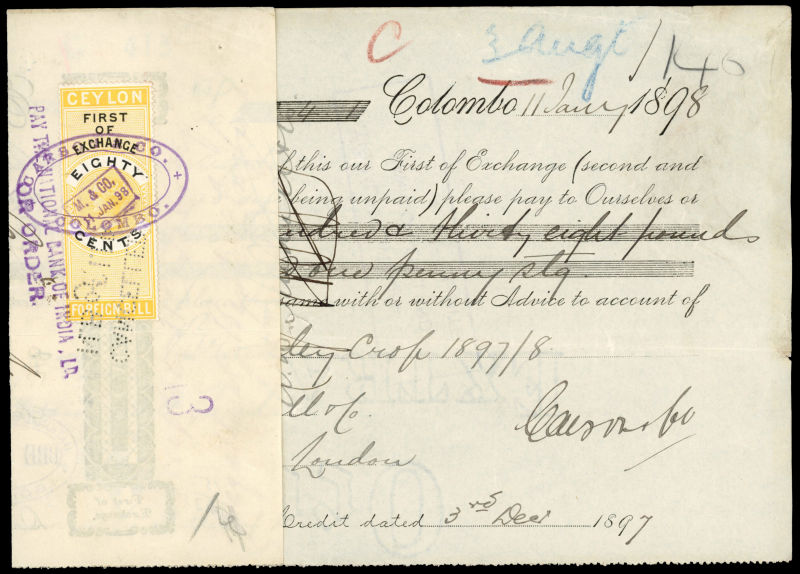 C 3 Augt / 140
Colombo 11 Jany 1898
4 1
f this our First of Exchange (second and
being unpaid) please pay to Ourselves or
undred & thirty eight pounds
one penny stg.
same with or without Advice to account of
ley Crop 1897/8
ll & Co.
London
Credit dated 3rd Decr 1897
CEYLON
FIRST
OF
EXCHANGE
EIGHTY
CENTS
FOREIGN BILL
S CO. +
M. & CO.
11 JAN. 98
COLOMBO.
PAY THE NATIONAL BANK OF INDIA, LD.
OR ORDER.
13